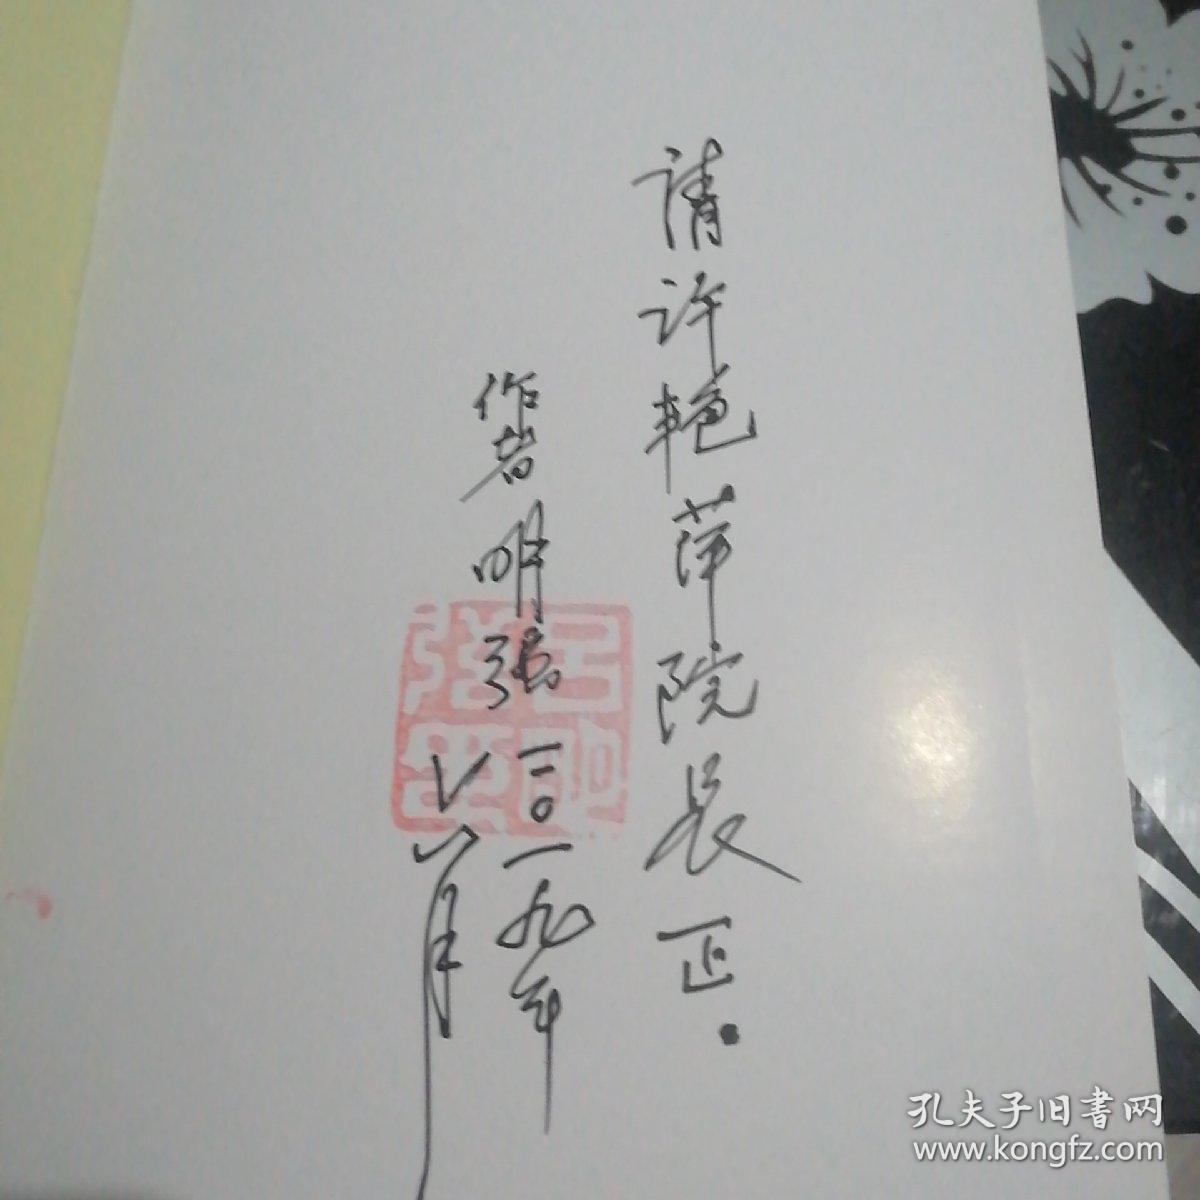 请许艳萍院长正。
作者明强二〇一九年
八月
孔夫子旧書网
www.kongfz.com